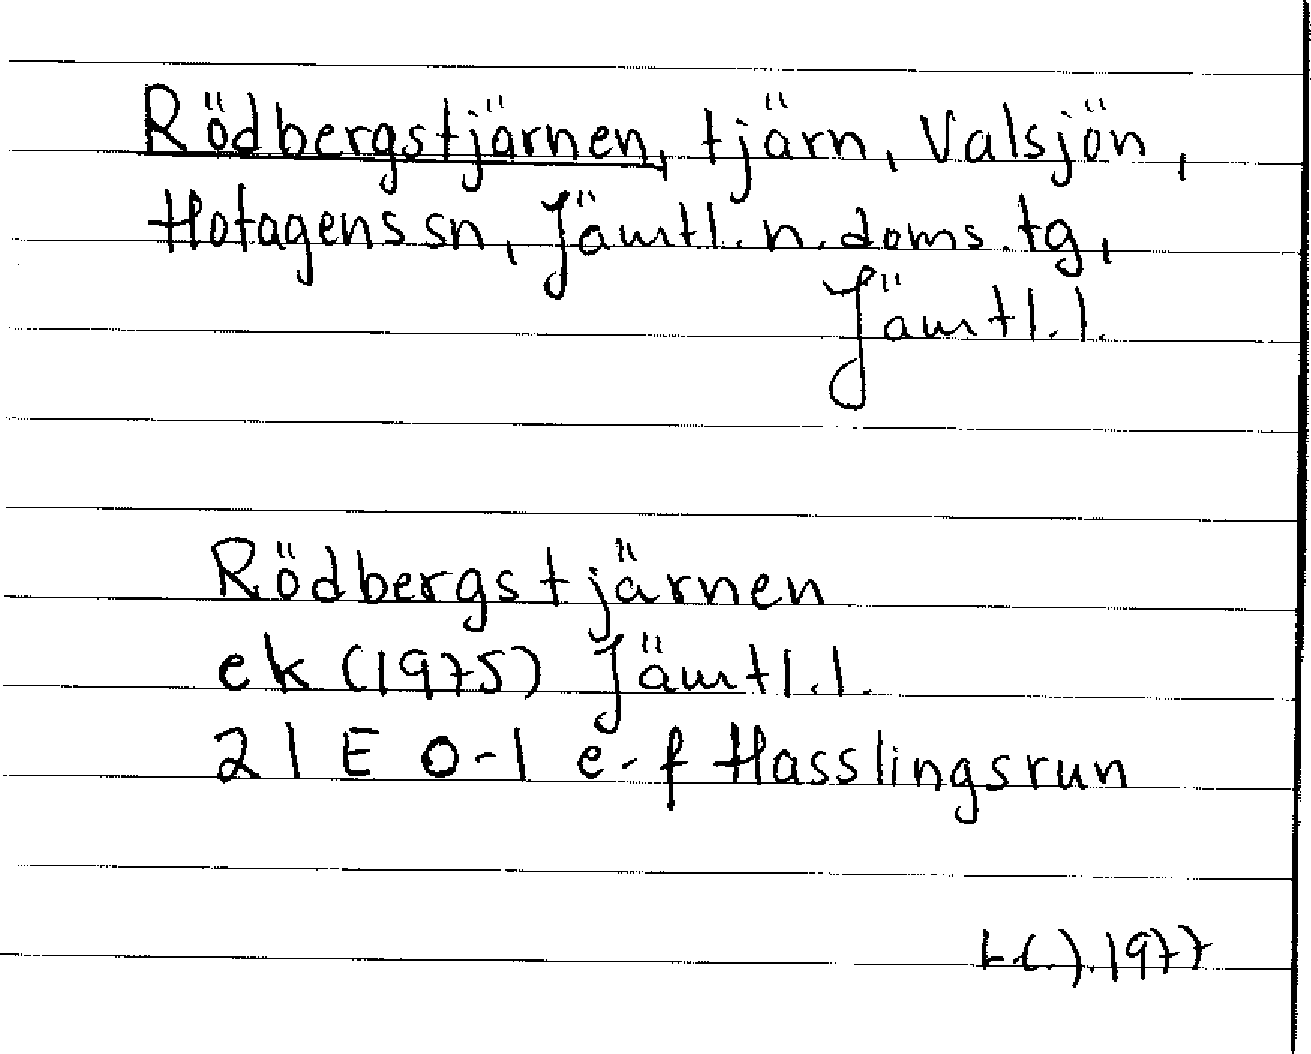 Rödbergstjärnen, tjärn, Valsjön,
Hotagens sn, Jämtl. n. doms. tg,
Jämtl. l.
Rödbergstjärnen
ek (1975) Jämtl. l.
21 E 0-1 e-f Hasslingsrun
1977